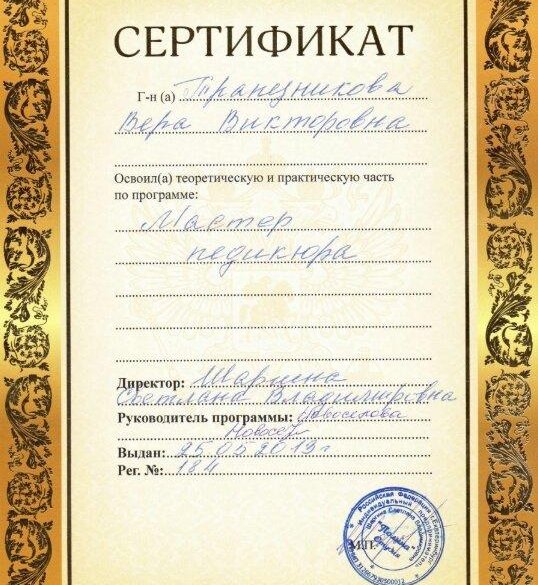 СЕРТИФИКАТ
Г-н (а) Трапезникова
Вера Викторовна
Освоил(а) теоретическую и практическую часть
по программе:
Мастер
педикюра
Директор: Шарина
Светлана Владимировна
Руководитель программы: Новоселова
Выдан: 25 05 2019 г
Рег. №: 184
М.П.
Российская Федерация
Индивидуальный предприниматель